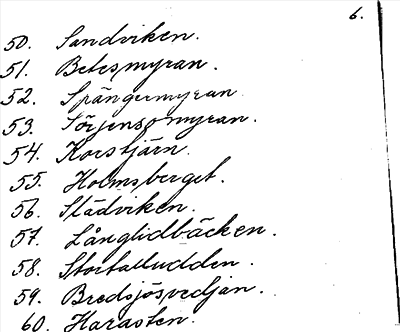 6.
50. Sandviken.
51. Betesmyran.
52. Spångermyran
53. Sörjensomyran.
54. Korstjärn.
55. Holmsberget.
56. Städviken.
57. Långlidbäcken.
58. Stortalludden.
59. Bredsjösvedjan.
60. Harasten.